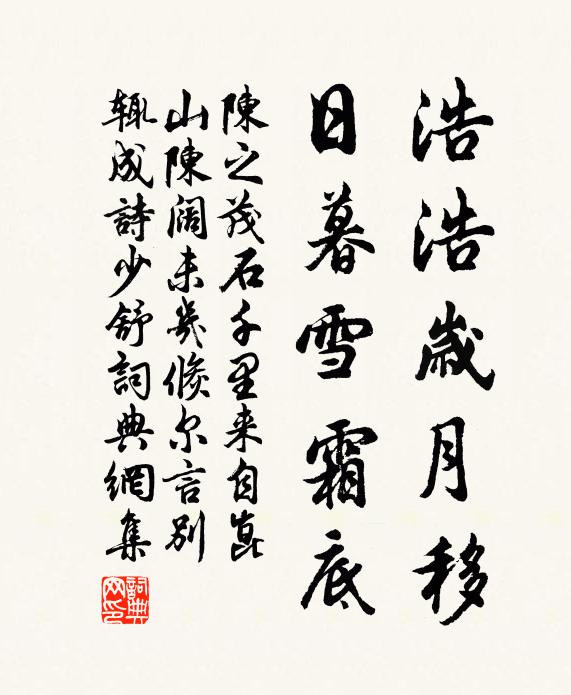 浩浩歲月移
日暮雪霜底
陳之茂石千里来自崑
山陳闊未幾倐尔言別
輒成詩少舒詞典網集
詞典網印